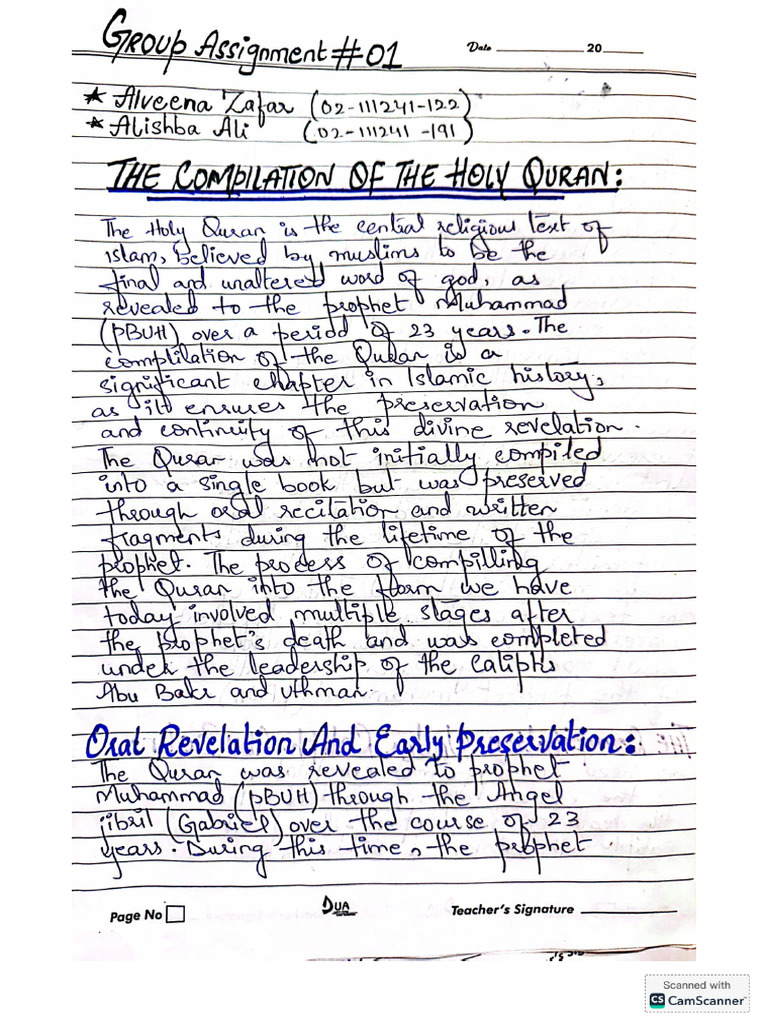 Group Assignment #01
Date ____________ 20 ______
* Alveena Zafar (02-111241-122)
* Alishba Ali (02-111241-191)
THE COMPILATION OF THE HOLY QURAN:
The Holy Quran is the central religious text of
islam, believed by muslims to be the
final and unaltered word of god, as
revealed to the prophet Muhammad
(PBUH) over a period of 23 years. The
complilation of the Quran is a
significant chapter in Islamic history,
as it ensures the preservation
and continuity of this divine revelation.
The Quran was not initially compiled
into a single book but was preserved
through oral recitation and written
fragments during the lifetime of the
prophet. The process of compilling
the Quran into the form we have
today involved multiple stages after
the prophet's death and was completed
under the leadership of the caliphs
Abu Bakr and uthman.
Oral Revelation And Early Preservation:
The Quran was revealed to prophet
Muhammad (PBUH) through the Angel
jibril (Gabriel) over the course of 23
years. During this time, the prophet
Page No
DUA
Teacher's Signature ____________
Scanned with
CS CamScanner